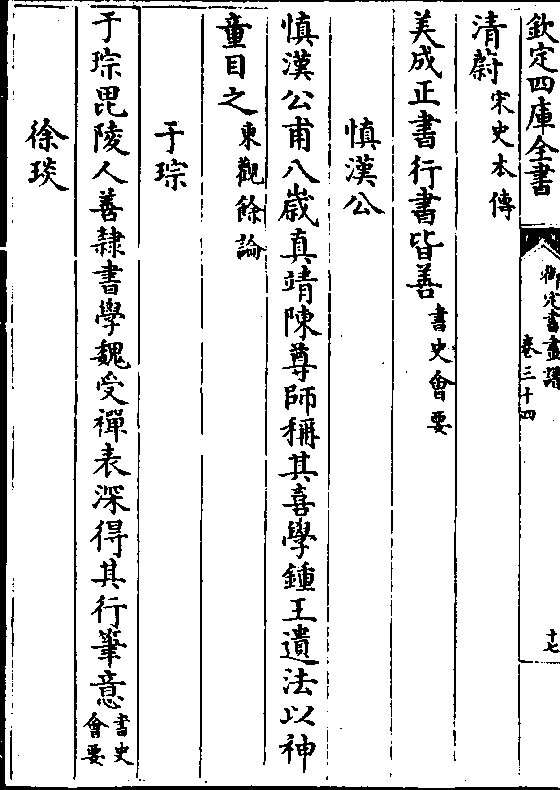 欽定四庫全書
御定書畫譜
卷三十四
十七
清蔚宋史本傳
美成正書行書皆善書史會要
慎漢公
慎漢公甫八歲真靖陳尊師稱其喜學鍾王遺法以神
童目之東觀餘論
于琮
于琮毘陵人善隸書學魏受禪表深得其行筆意書史會要
徐琰